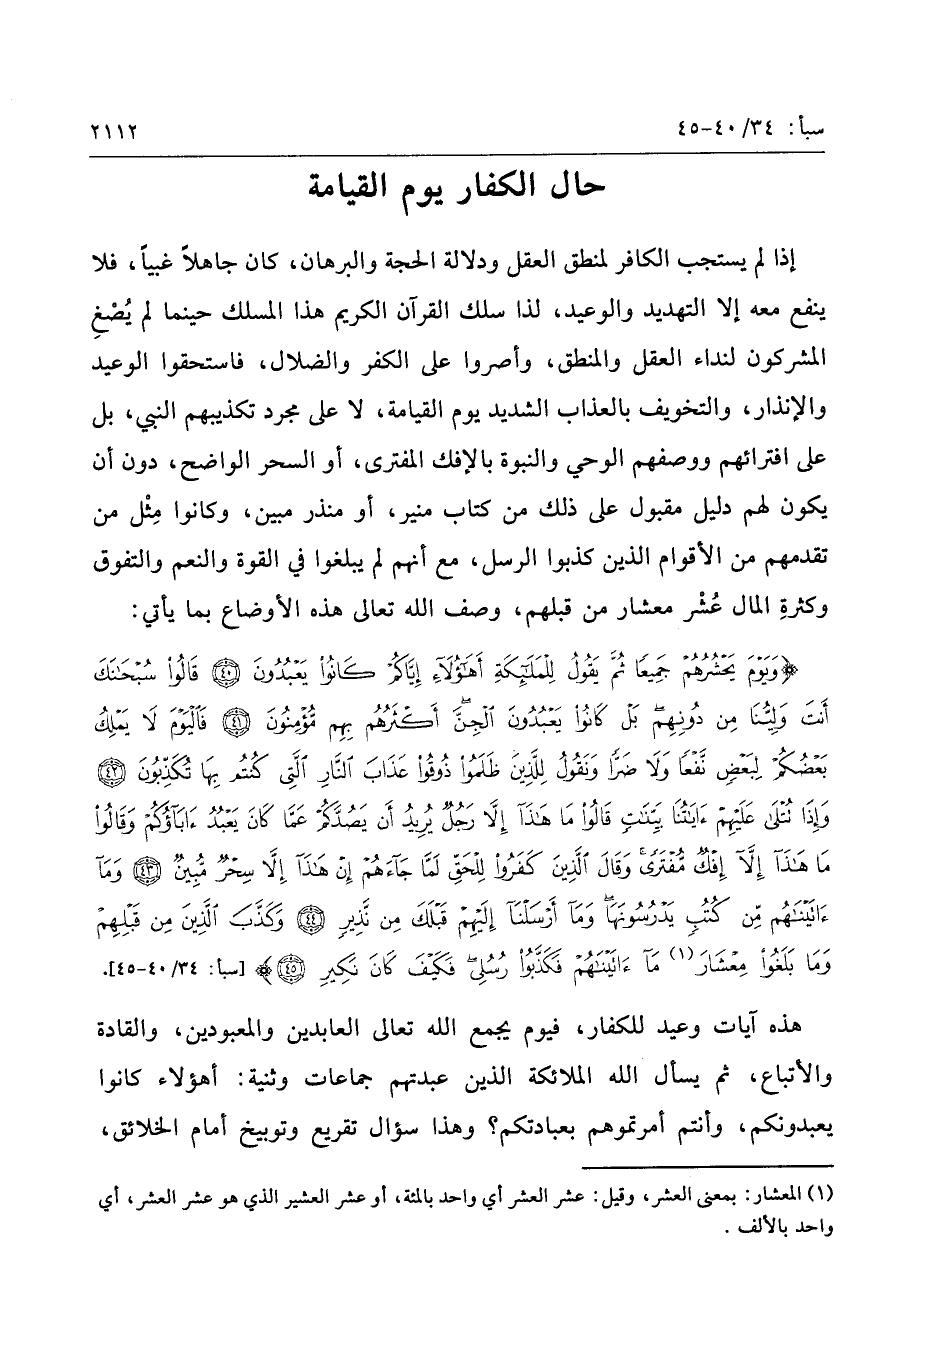 سبأ: ٣٤/ ٤٠-٤٥ ٢١١٢
حال الكفار يوم القيامة
إذا لم يستجب الكافر لمنطق العقل ودلالة الحجة والبرهان، كان جاهلاً غبياً، فلا
ينفع معه إلا التهديد والوعيد، لذا سلك القرآن الكريم هذا المسلك حينما لم يُصْغِ
المشركون لنداء العقل والمنطق، وأصروا على الكفر والضلال، فاستحقوا الوعيد
والإنذار، والتخويف بالعذاب الشديد يوم القيامة، لا على مجرد تكذيبهم النبي، بل
على افترائهم ووصفهم الوحي والنبوة بالإفك المفترى، أو السحر الواضح، دون أن
يكون لهم دليل مقبول على ذلك من كتاب منير، أو منذر مبين، وكانوا مِثْل من
تقدمهم من الأقوام الذين كذبوا الرسل، مع أنهم لم يبلغوا في القوة والنعم والتفوق
وكثرةِ المال عُشْر معشار من قبلهم، وصف الله تعالى هذه الأوضاع بما يأتي:
﴿وَيَوْمَ يَحْشُرُهُمْ جَمِيعًا ثُمَّ يَقُولُ لِلْمَلَٰٓئِكَةِ أَهَٰٓؤُلَآءِ إِيَّاكُمْ كَانُوا۟ يَعْبُدُونَ ﴿٤٠﴾ قَالُوا۟ سُبْحَٰنَكَ
أَنتَ وَلِيُّنَا مِن دُونِهِم ۖ بَلْ كَانُوا۟ يَعْبُدُونَ ٱلْجِنَّ ۖ أَكْثَرُهُم بِهِم مُّؤْمِنُونَ ﴿٤١﴾ فَٱلْيَوْمَ لَا يَمْلِكُ
بَعْضُكُمْ لِبَعْضٍ نَّفْعًا وَلَا ضَرًّا وَنَقُولُ لِلَّذِينَ ظَلَمُوا۟ ذُوقُوا۟ عَذَابَ ٱلنَّارِ ٱلَّتِى كُنتُم بِهَا تُكَذِّبُونَ ﴿٤٢﴾
وَإِذَا تُتْلَىٰ عَلَيْهِمْ ءَايَٰتُنَا بَيِّنَٰتٍ قَالُوا۟ مَا هَٰذَآ إِلَّا رَجُلٌ يُرِيدُ أَن يَصُدَّكُمْ عَمَّا كَانَ يَعْبُدُ ءَابَآؤُكُمْ وَقَالُوا۟
مَا هَٰذَآ إِلَّآ إِفْكٌ مُّفْتَرًى ۚ وَقَالَ ٱلَّذِينَ كَفَرُوا۟ لِلْحَقِّ لَمَّا جَآءَهُمْ إِنْ هَٰذَآ إِلَّا سِحْرٌ مُّبِينٌ ﴿٤٣﴾ وَمَآ
ءَاتَيْنَٰهُم مِّن كُتُبٍ يَدْرُسُونَهَا ۖ وَمَآ أَرْسَلْنَآ إِلَيْهِمْ قَبْلَكَ مِن نَّذِيرٍ ﴿٤٤﴾ وَكَذَّبَ ٱلَّذِينَ مِن قَبْلِهِمْ
وَمَا بَلَغُوا۟ مِعْشَارَ (١) مَآ ءَاتَيْنَٰهُمْ فَكَذَّبُوا۟ رُسُلِى ۖ فَكَيْفَ كَانَ نَكِيرِ ﴿٤٥﴾﴾ [سبأ: ٣٤/ ٤٠-٤٥].
هذه آيات وعيد للكفار، فيوم يجمع الله تعالى العابدين والمعبودين، والقادة
والأتباع، ثم يسأل الله الملائكة الذين عبدتهم جماعات وثنية: أهؤلاء كانوا
يعبدونكم، وأنتم أمرتموهم بعبادتكم؟ وهذا سؤال تقريع وتوبيخ أمام الخلائق،
(١) المعشار: بمعنى العشر، وقيل: عشر العشر أي واحد بالمئة، أو عشر العشير الذي هو عشر العشر، أي
واحد بالألف.